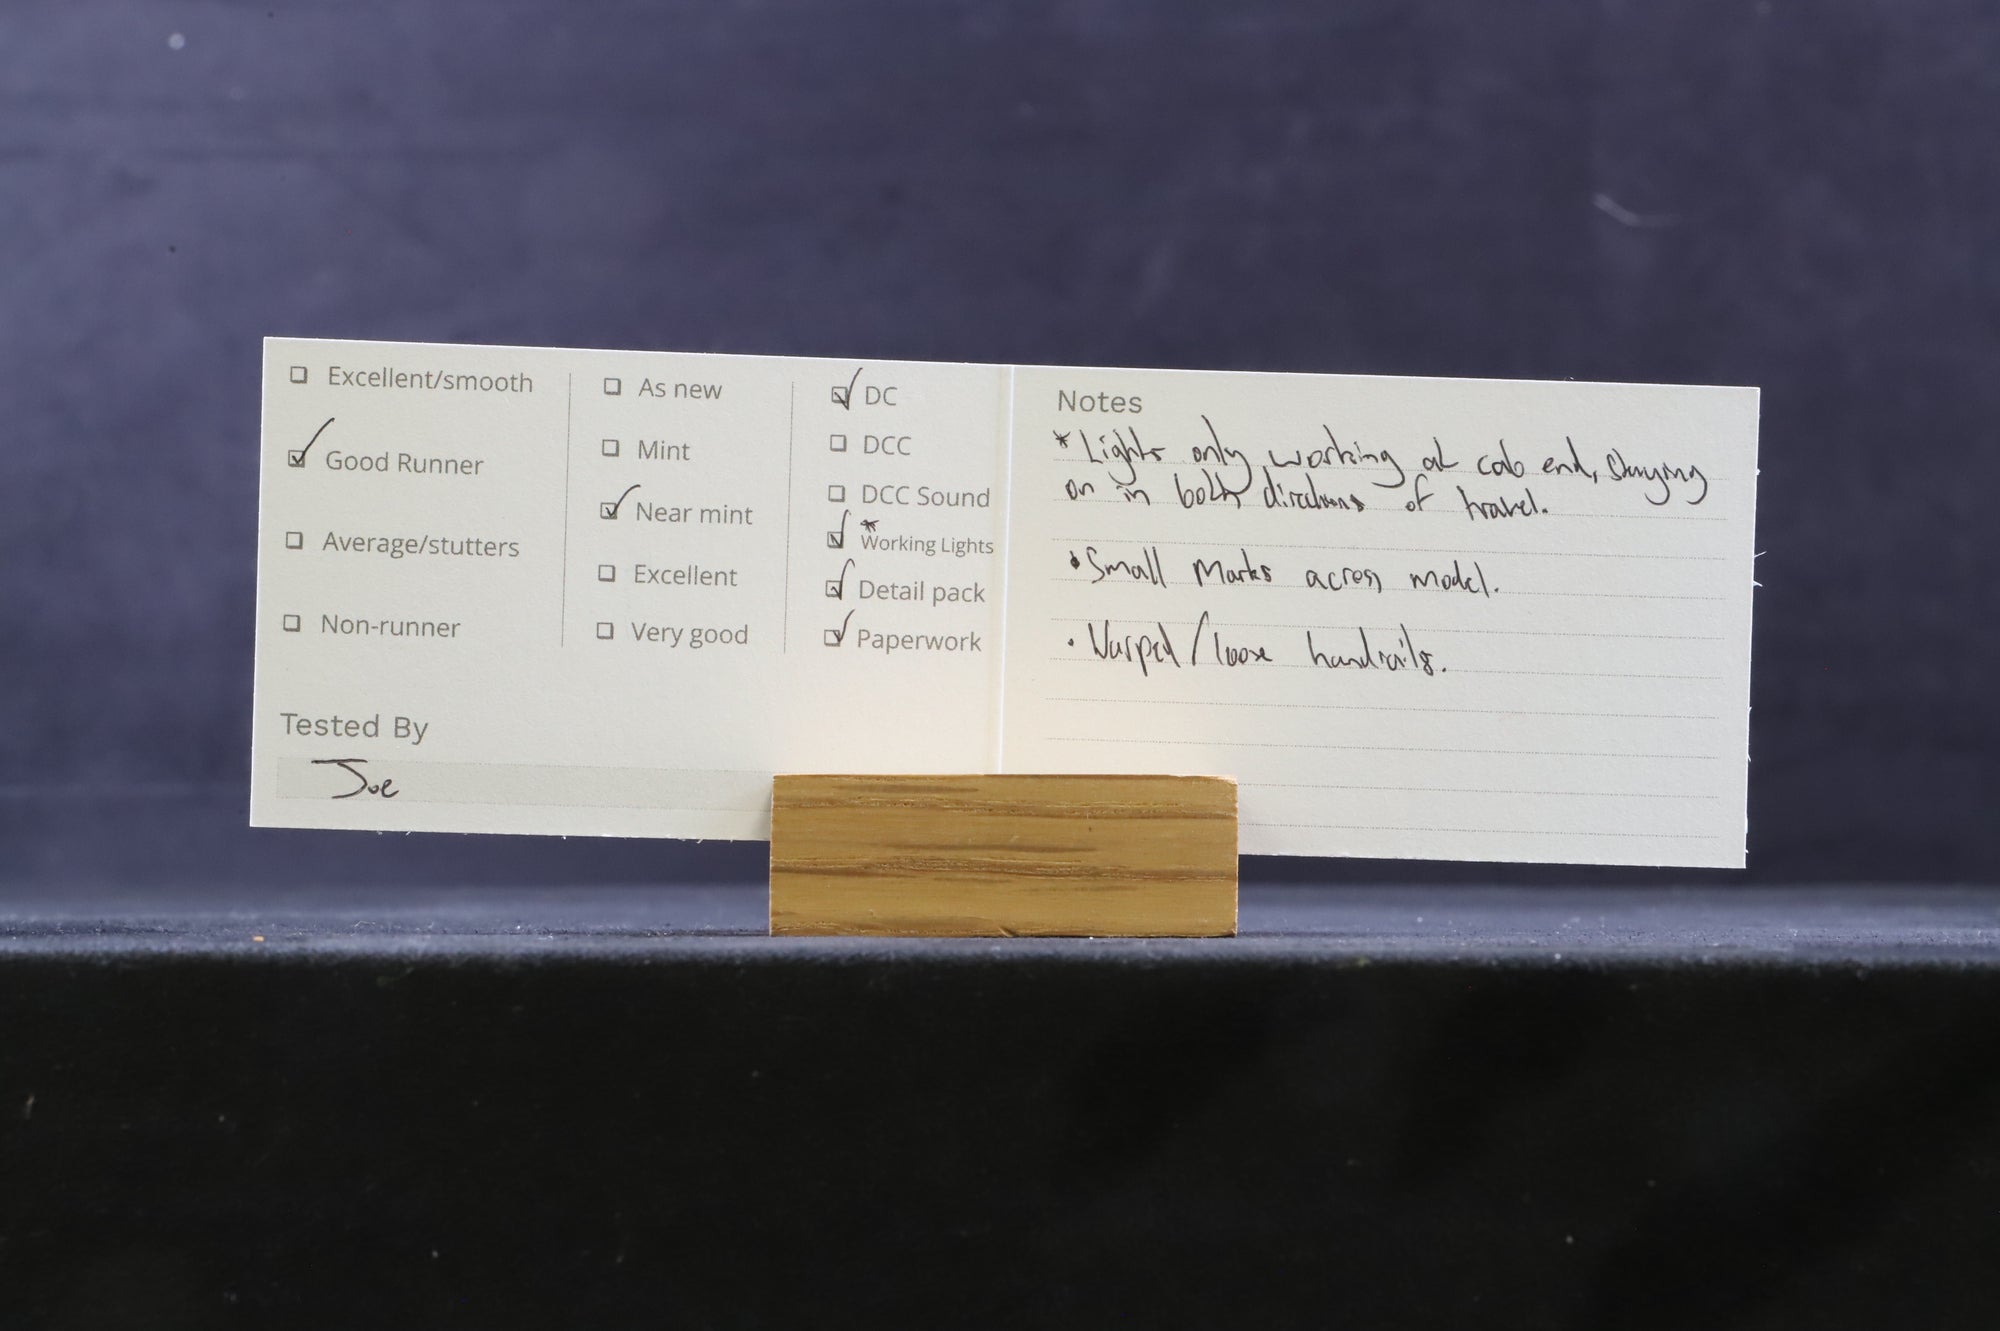 Excellent/smooth
Good Runner
Average/stutters
Non-runner
Tested By
Joe
As new
Mint
Near mint
Excellent
Very good
DC
DCC
DCC Sound
*
Working Lights
Detail pack
Paperwork
Notes
*Lights only working at cab end, staying
on in both directions of travel.
•Small Marks across model.
•Warped/loose handrails.